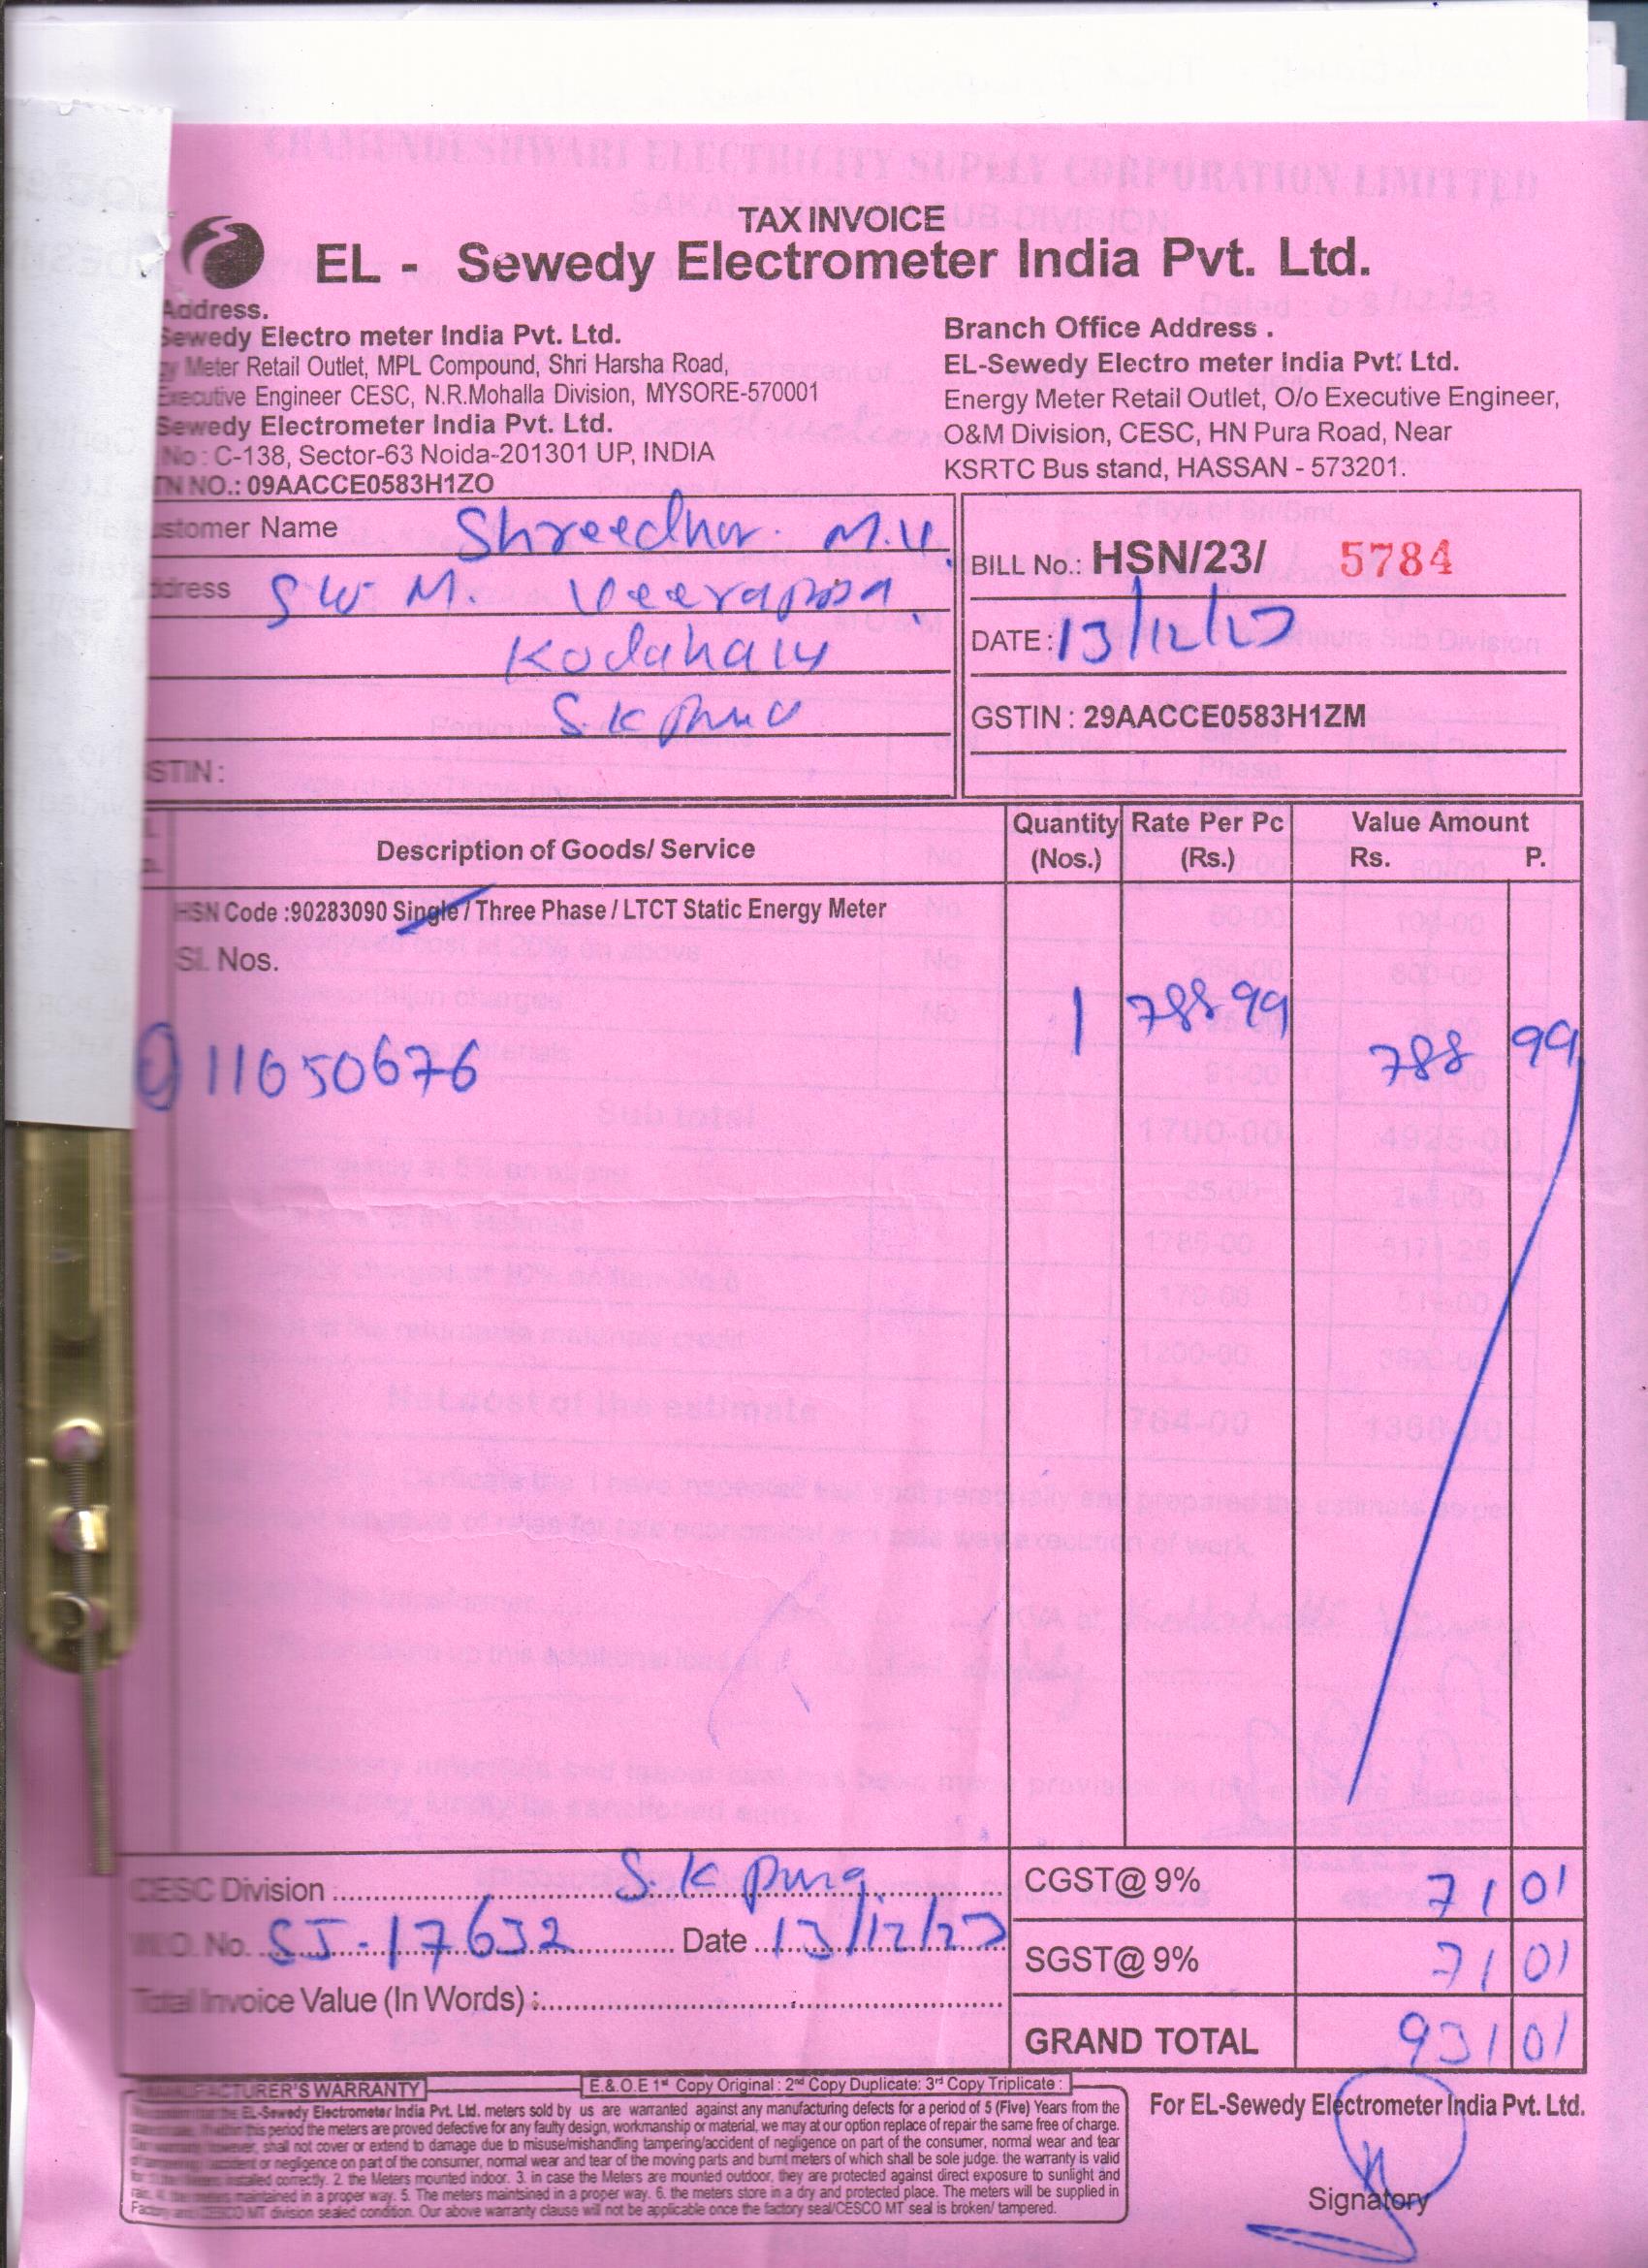 TAX INVOICE
EL - Sewedy Electrometer India Pvt. Ltd.
Address.
Sewedy Electro meter India Pvt. Ltd.
Meter Retail Outlet, MPL Compound, Shri Harsha Road,
Executive Engineer CESC, N.R.Mohalla Division, MYSORE-570001
Sewedy Electrometer India Pvt. Ltd.
No : C-138, Sector-63 Noida-201301 UP, INDIA
TN NO.: 09AACCE0583H1ZO
Branch Office Address .
EL-Sewedy Electro meter India Pvt. Ltd.
Energy Meter Retail Outlet, O/o Executive Engineer,
O&M Division, CESC, HN Pura Road, Near
KSRTC Bus stand, HASSAN - 573201.
stomer Name Shreedhar. M.V.
ddress S/o M. Veerappa,
Kodahally
S.K pura
STIN :
BILL No.: HSN/23/ 5784
DATE : 13/12/23
GSTIN : 29AACCE0583H1ZM
Description of Goods/ Service
Quantity (Nos.)
Rate Per Pc (Rs.)
Value Amount
Rs. P.
HSN Code :90283090 Single / Three Phase / LTCT Static Energy Meter
Sl. Nos.
1 788 99
11650676 788 99
CESC Division S.K pura
W.O. No. SJ-17632 Date 13/12/23
Total Invoice Value (In Words) :
CGST@ 9% 71 01
SGST@ 9% 71 01
GRAND TOTAL 931 01
MANUFACTURER'S WARRANTY
E.& O.E 1st Copy Original : 2nd Copy Duplicate: 3rd Copy Triplicate :
EL-Sewedy Electrometer India Pvt. Ltd. meters sold by us are warranted against any manufacturing defects for a period of 5 (Five) Years from the
this period the meters are proved defective for any faulty design, workmanship or material, we may at our option replace of repair the same free of charge.
however, shall not cover or extend to damage due to misuse/mishandling tampering/accident of negligence on part of the consumer, normal wear and tear
accident or negligence on part of the consumer, normal wear and tear of the moving parts and burnt meters of which shall be sole judge. the warranty is valid
installed correctly. 2. the Meters mounted indoor. 3. in case the Meters are mounted outdoor, they are protected against direct exposure to sunlight and
maintained in a proper way. 5. The meters maintsined in a proper way. 6. the meters store in a dry and protected place. The meters will be supplied in
MT division sealed condition. Our above warranty clause will not be applicable once the factory seal/CESCO MT seal is broken/ tampered.
For EL-Sewedy Electrometer India Pvt. Ltd.
Signatory